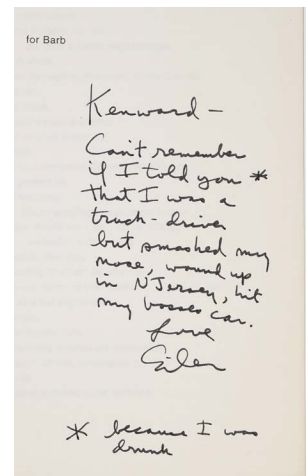 for Barb
Kenward –
Can't remember
if I told you *
that I was a
truck-driver
but smashed my
nose, wound up
in NJersey, hit
my bosses car.
Love
Eileen
* because I was
drunk